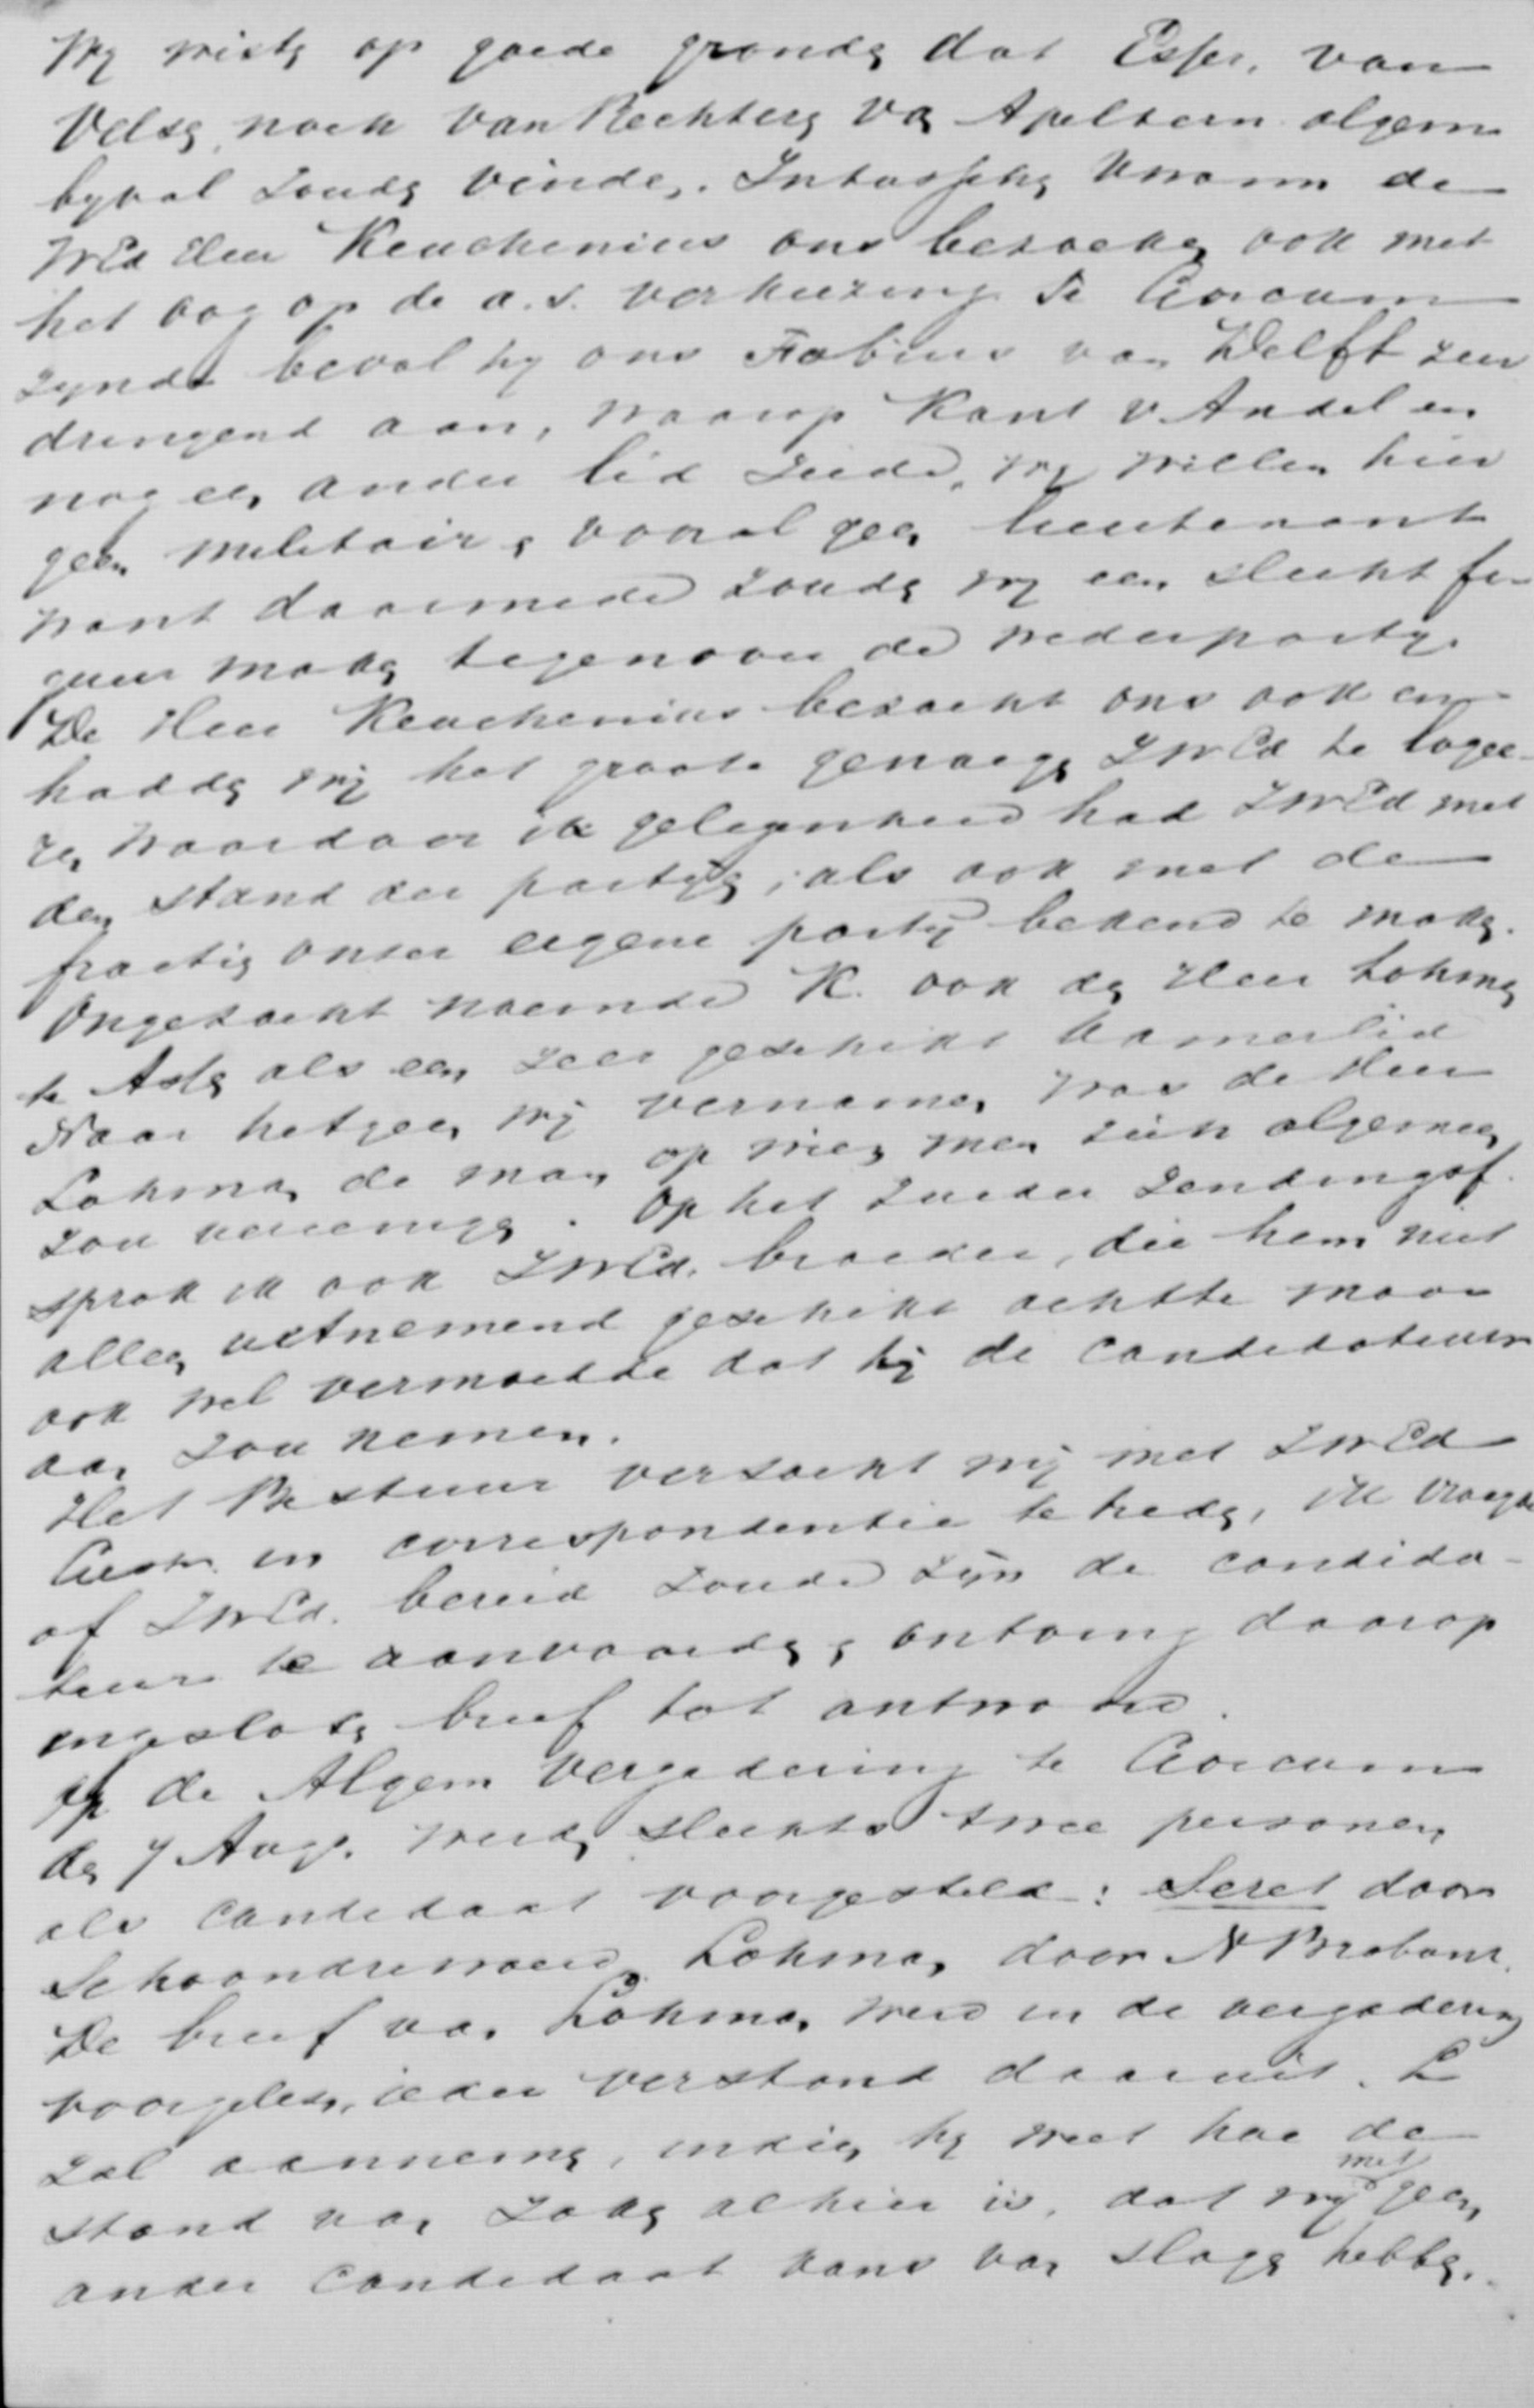 Wy wisten op goede gronden dat Esser, van
Velsen, noch van Rechteren van Apeltern algem
byval zouden vinden. Intusschen kwam de
WEd Heer Keuchenius ons bezoeken ook met
het oog op de a.s. verkiezing te Gorcum
zynde beval hy ons Fabius van Delft zeer
dringend aan, waarop Kant v. Andel en
nog een ander lid zeide, wy willen hier
geen militair, vooral geen lieutenant
want daarmede zouden wy een slecht fi-
guur maken tegenover de wederpartij.
De Heer Keuchenius bezocht ons ook en
hadden wij het groote genoegen ZWEd te logee-
ren waardoor ik gelegenheid had ZWEd met
den stand der partijen, als ook met de
fractien onser eigene partij bekend te maken.
Ongezocht noemde K. ook den Heer Lohman
te Asten als een zeer geschikt kamerlid
Naar hetgeen wij vernamen was de Heer
Lohman de man op wien men zich algemeen
zou vereenigen. Op het Zuider Zendingsf.
sprak ik ook ZWEd. broeder, die hem niet
alleen uitnemend geschikt achtte maar
ook wel vermoedde dat hij de candidatuur
aan zou nemen.
Het Bestuur verzocht mij met ZWEd
Gestr. in correspondentie te treden, ik vraagde
of ZWEd. bereid zoude zijn de candida-
tuur te aanvaarden, ontving daarop
ingesloten brief tot antwoord.
Op de Algem Vergadering te Gorcum
den 7 Aug. werden slechts twee personen
als candidaat voorgesteld: Seret door
Schoondrewoerd, Lohman door N Brabant.
De brief van Lohman werd in de vergadering
voorgelezen, ieder verstond daaruit. L
zal aannemen, indien hy weet hoe de
stand van zaken alhier is, dat wij met geen
ander candidaat kans van slagen hebben.